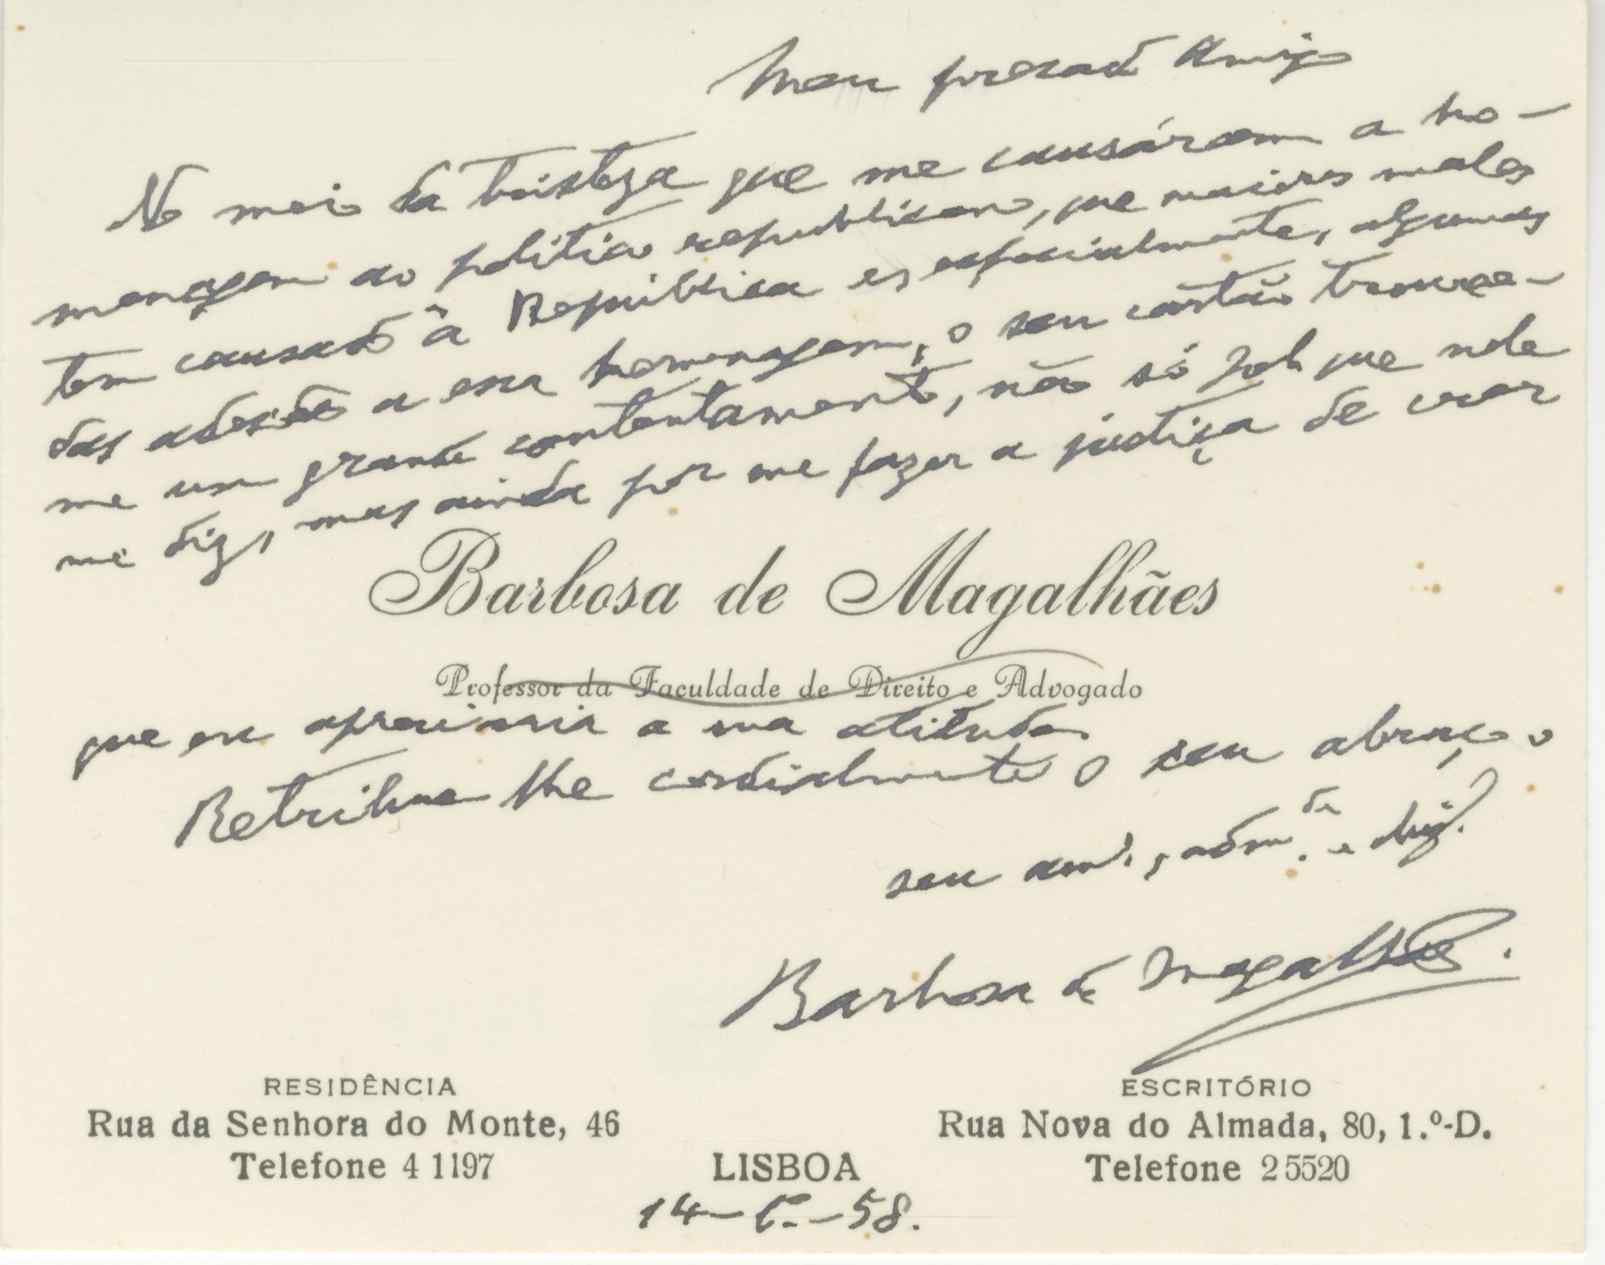 Meu presado Amigo
No meio da tristeza que me causáram a ho-
menagem ao politico republicano, que maiores males
tem causado á Republica e, especialmente, algumas
das adesões a essa homenagem, o seu cartão trouxe-
me um grande contentamento, não só pelo que nele
me diz, mas ainda por me fazer a justiça de crer
Barbosa de Magalhães
Professor da Faculdade de Direito e Advogado
que eu apreciaria a sua atitude.
Retribue-lhe cordialmente o seu abraço o
seu am.º, adm.dor e obrig.do
Barbosa de Magalhães.
RESIDÊNCIA
Rua da Senhora do Monte, 46
Telefone 4 1197
ESCRITÓRIO
Rua Nova do Almada, 80, 1.º-D.
Telefone 2 5520
LISBOA
14- -58.